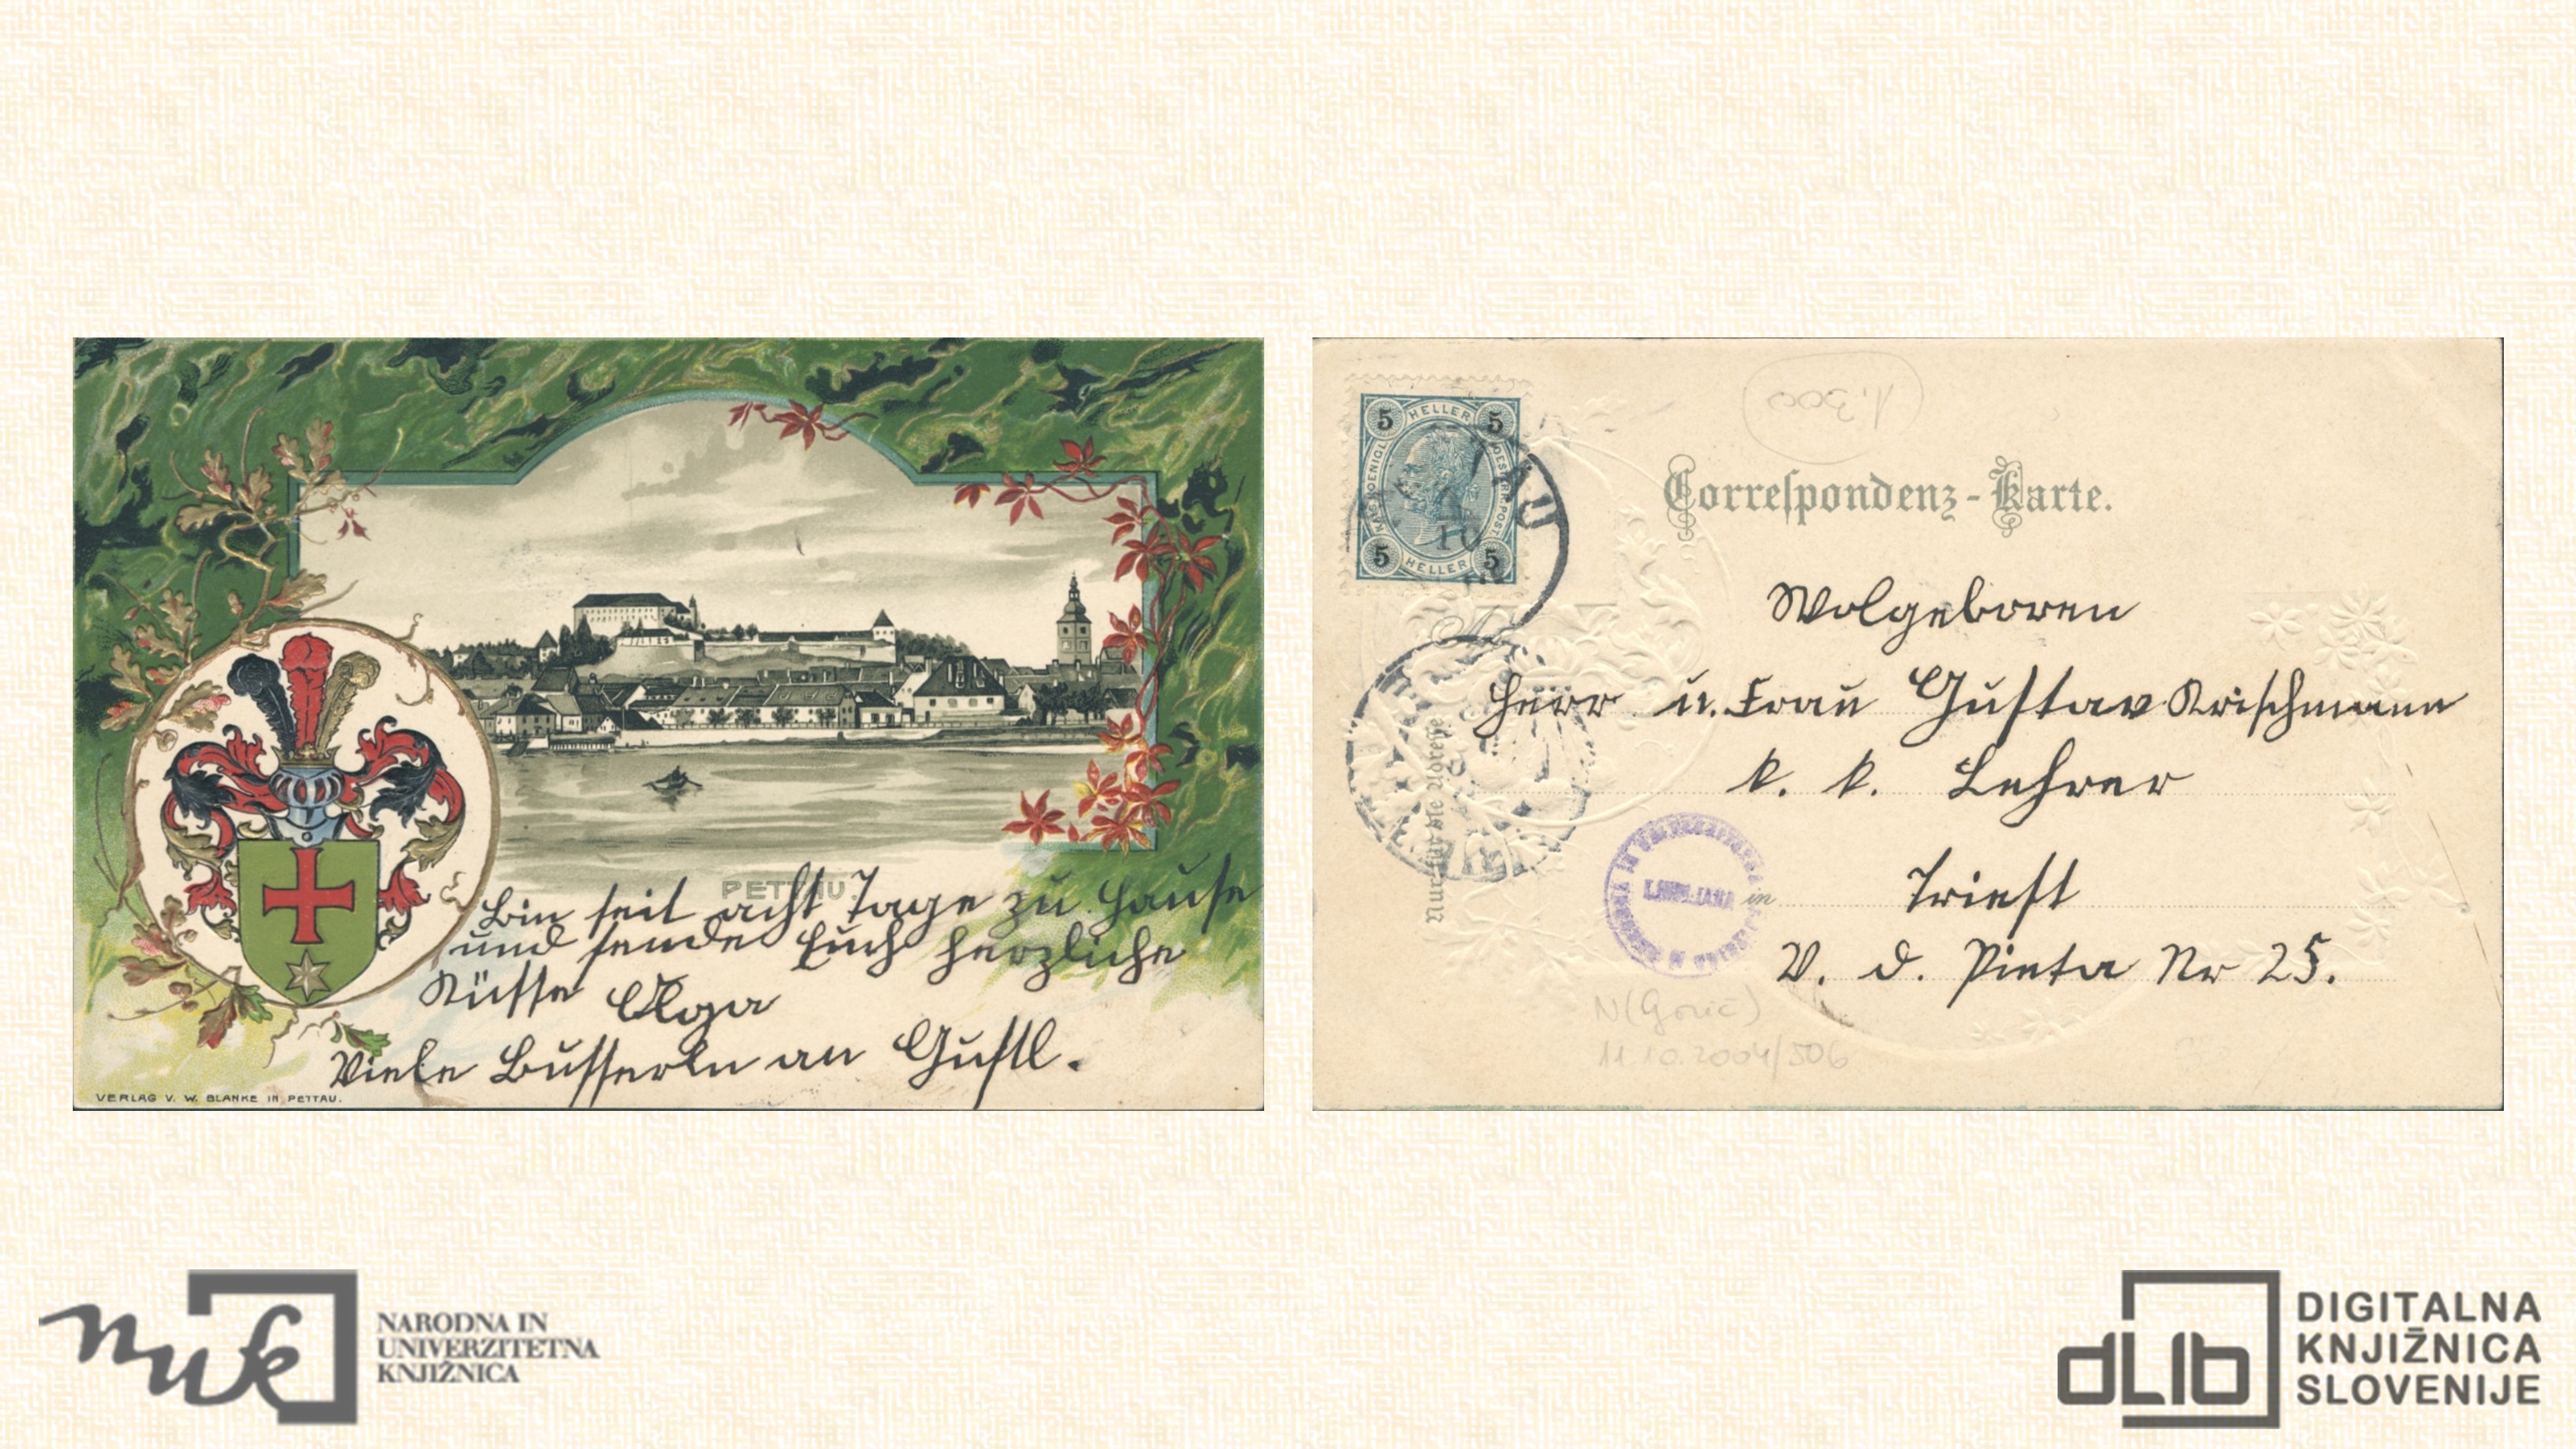 PETTAU
Bin seit acht Tage zu Hause
und sende Euch herzliche
Küsse Olga
Viele Busserln an Gustl.
VERLAG V. W. BLANKE IN PETTAU.
5 HELLER 5
5 HELLER 5
TAU
10
1.300
Correspondenz-Karte.
Wolgeboren
Herr u. Frau Gustav Krischmann
k. k. Lehrer
in Triest
V. d. Pieta Nr 25.
Nur für die Adresse
LJUBLJANA
N(Gorič)
11.10.2004/506
nuk
NARODNA IN
UNIVERZITETNA
KNJIŽNICA
dLib
DIGITALNA
KNJIŽNICA
SLOVENIJE